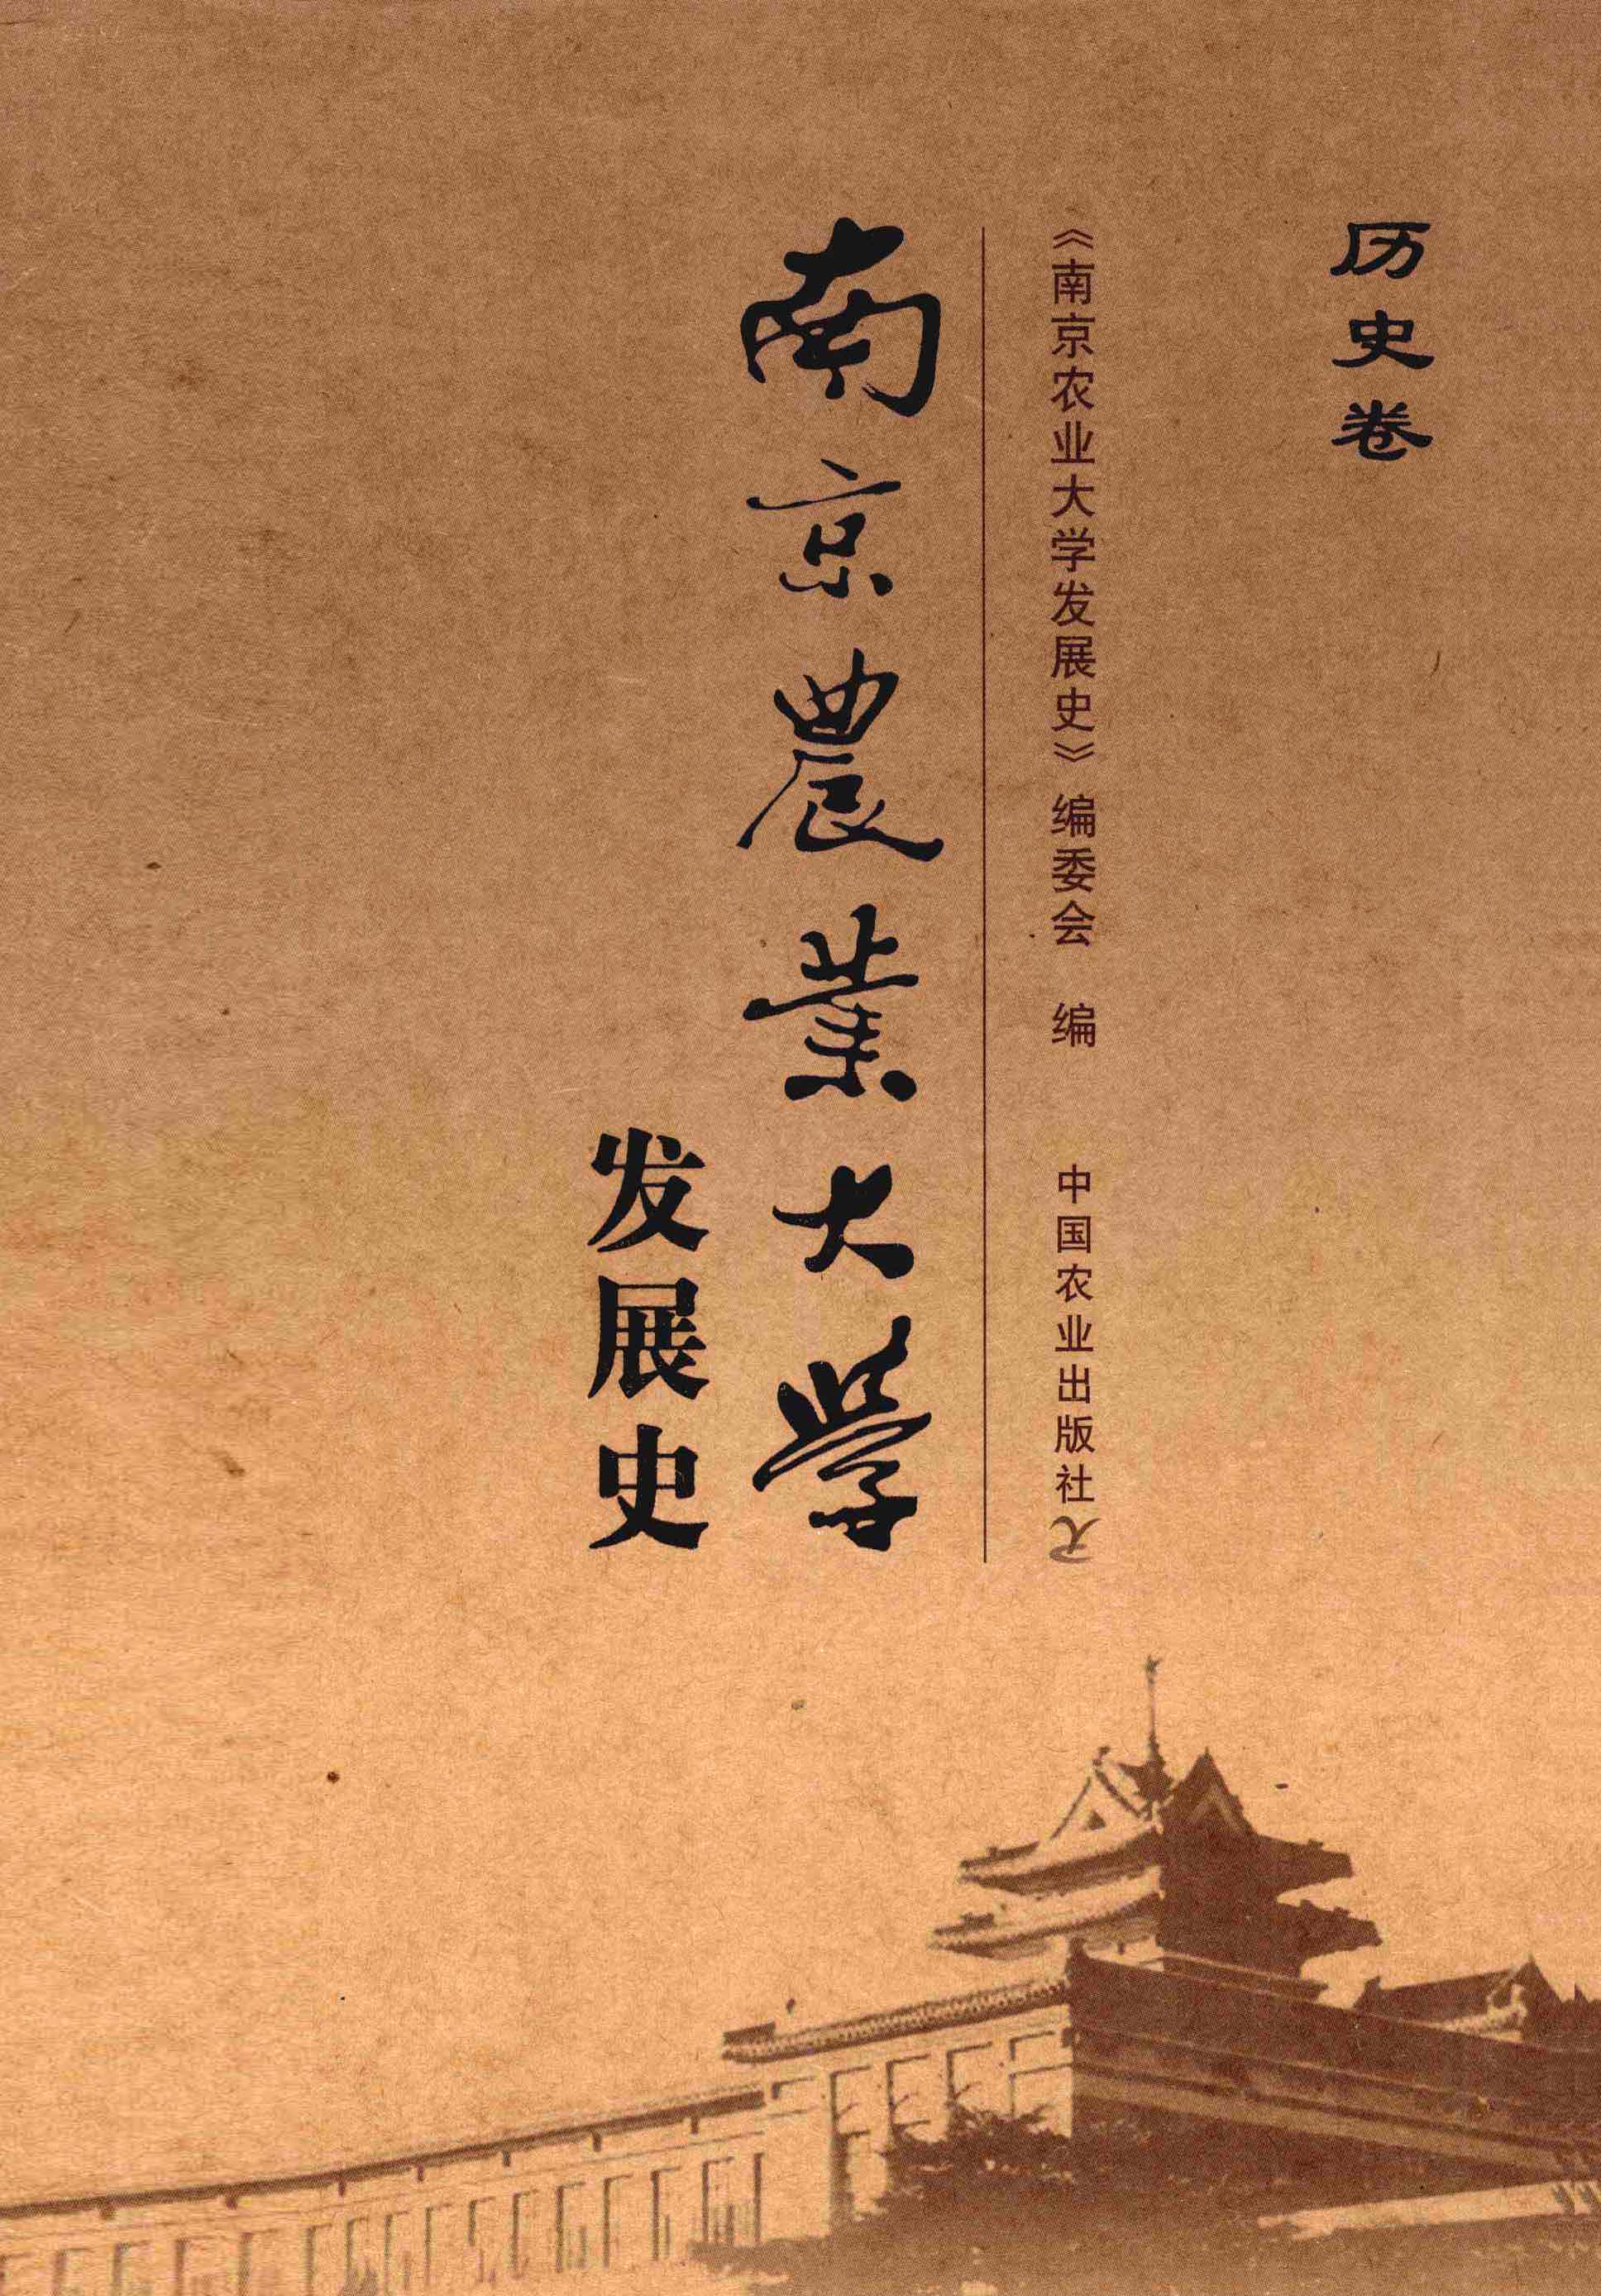 历史卷
《南京农业大学发展史》编委会 编 中国农业出版社
南京農業大學
发展史